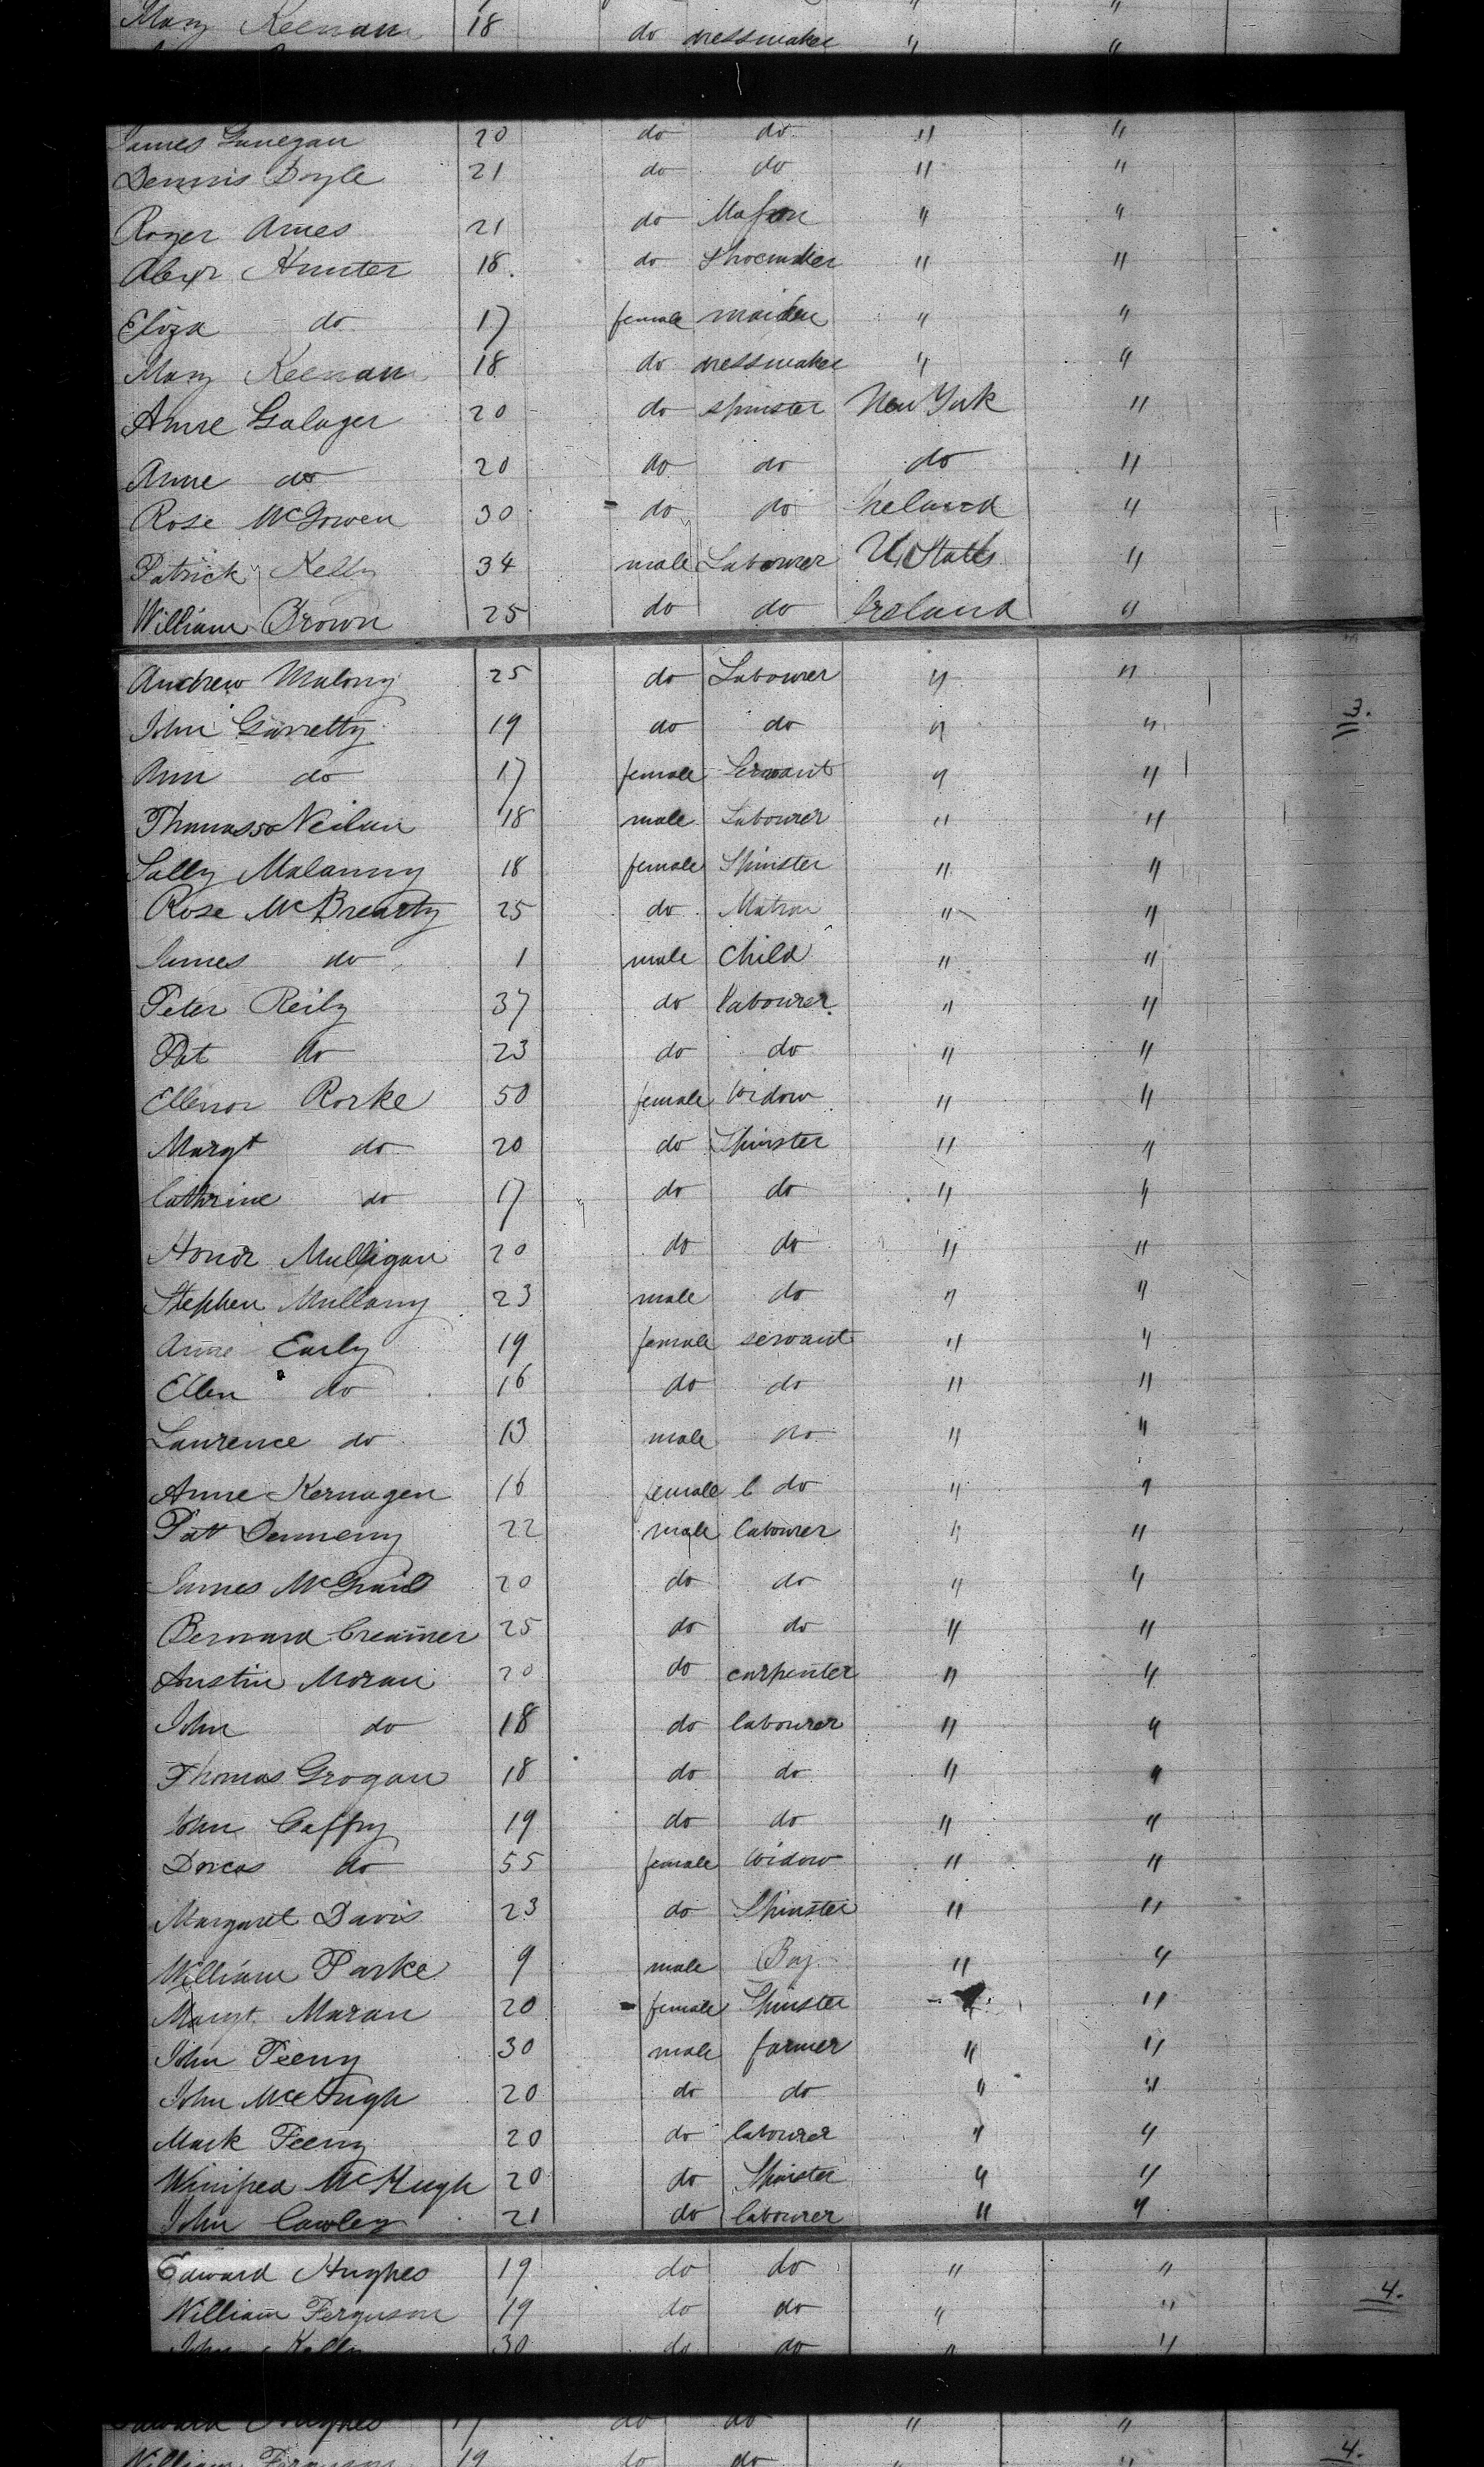 Mary Keenan 18 do dressmaker " "
James Lunegan 20 do do " "
Dennis Boyle 21 do do " "
Roger Ames 21 do Mason " "
Alexr Hunter 18. do Shoemaker " "
Eliza do 17 female maiden " "
Mary Keenan 18 do dressmaker " "
Anne Galager 20 do spinster New York "
Anne do 20 do do do "
Rose McGowen 30 do do Ireland "
Patrick Kelly 34 male Labourer U States "
William Brown 25 do do Ireland "
Andrew Malony 25 do Labourer " "
John Garretty 19 do do " " 3.
Ann do 17 female Servant " "
Thomas Neilan 18 male Labourer " "
Sally Malanny 18 female Spinster " "
Rose McBrearty 25 do Matron " "
James do 1 male Child " "
Peter Reily 37 do labourer " "
Pat do 23 do do " "
Ellenor Rorke 50 female Widow " "
Margt do 20 do Spinster " "
Cathrine do 17 do do " "
Honor Mulligan 20 do do " "
Stephen Mullany 23 male do " "
Anne Early 19 female servant " "
Ellen do 16 do do " "
Laurence do 13 male do " "
Anne Kernagen 16 female do " "
Patt Denneny 22 male labourer " "
James 20 do do " "
Bernard Creamer 25 do do " "
Austin Moran 20 do carpenter " "
John do 18 do labourer " "
Thomas Grogan 18 do do " "
John Caffry 19 do do " "
Dorcas do 55 female widow " "
Margaret Davis 23 do Spinster " "
William Parke 9 male Boy " "
Margt. Maran 20 female Spinster "
John Feeny 30 male farmer " "
John McHugh 20 do do " "
Mark Feeny 20 do labourer " "
Winifred McHugh 20 do Spinster " "
John Cawley 21 do labourer " "
Edward Hughes 19 do do " "
William Ferguson 19 do do " " 4.
John Kelly 30 do do " "
Edward Hughes 19 do do " "
William Ferguson 19 do do " " 4.